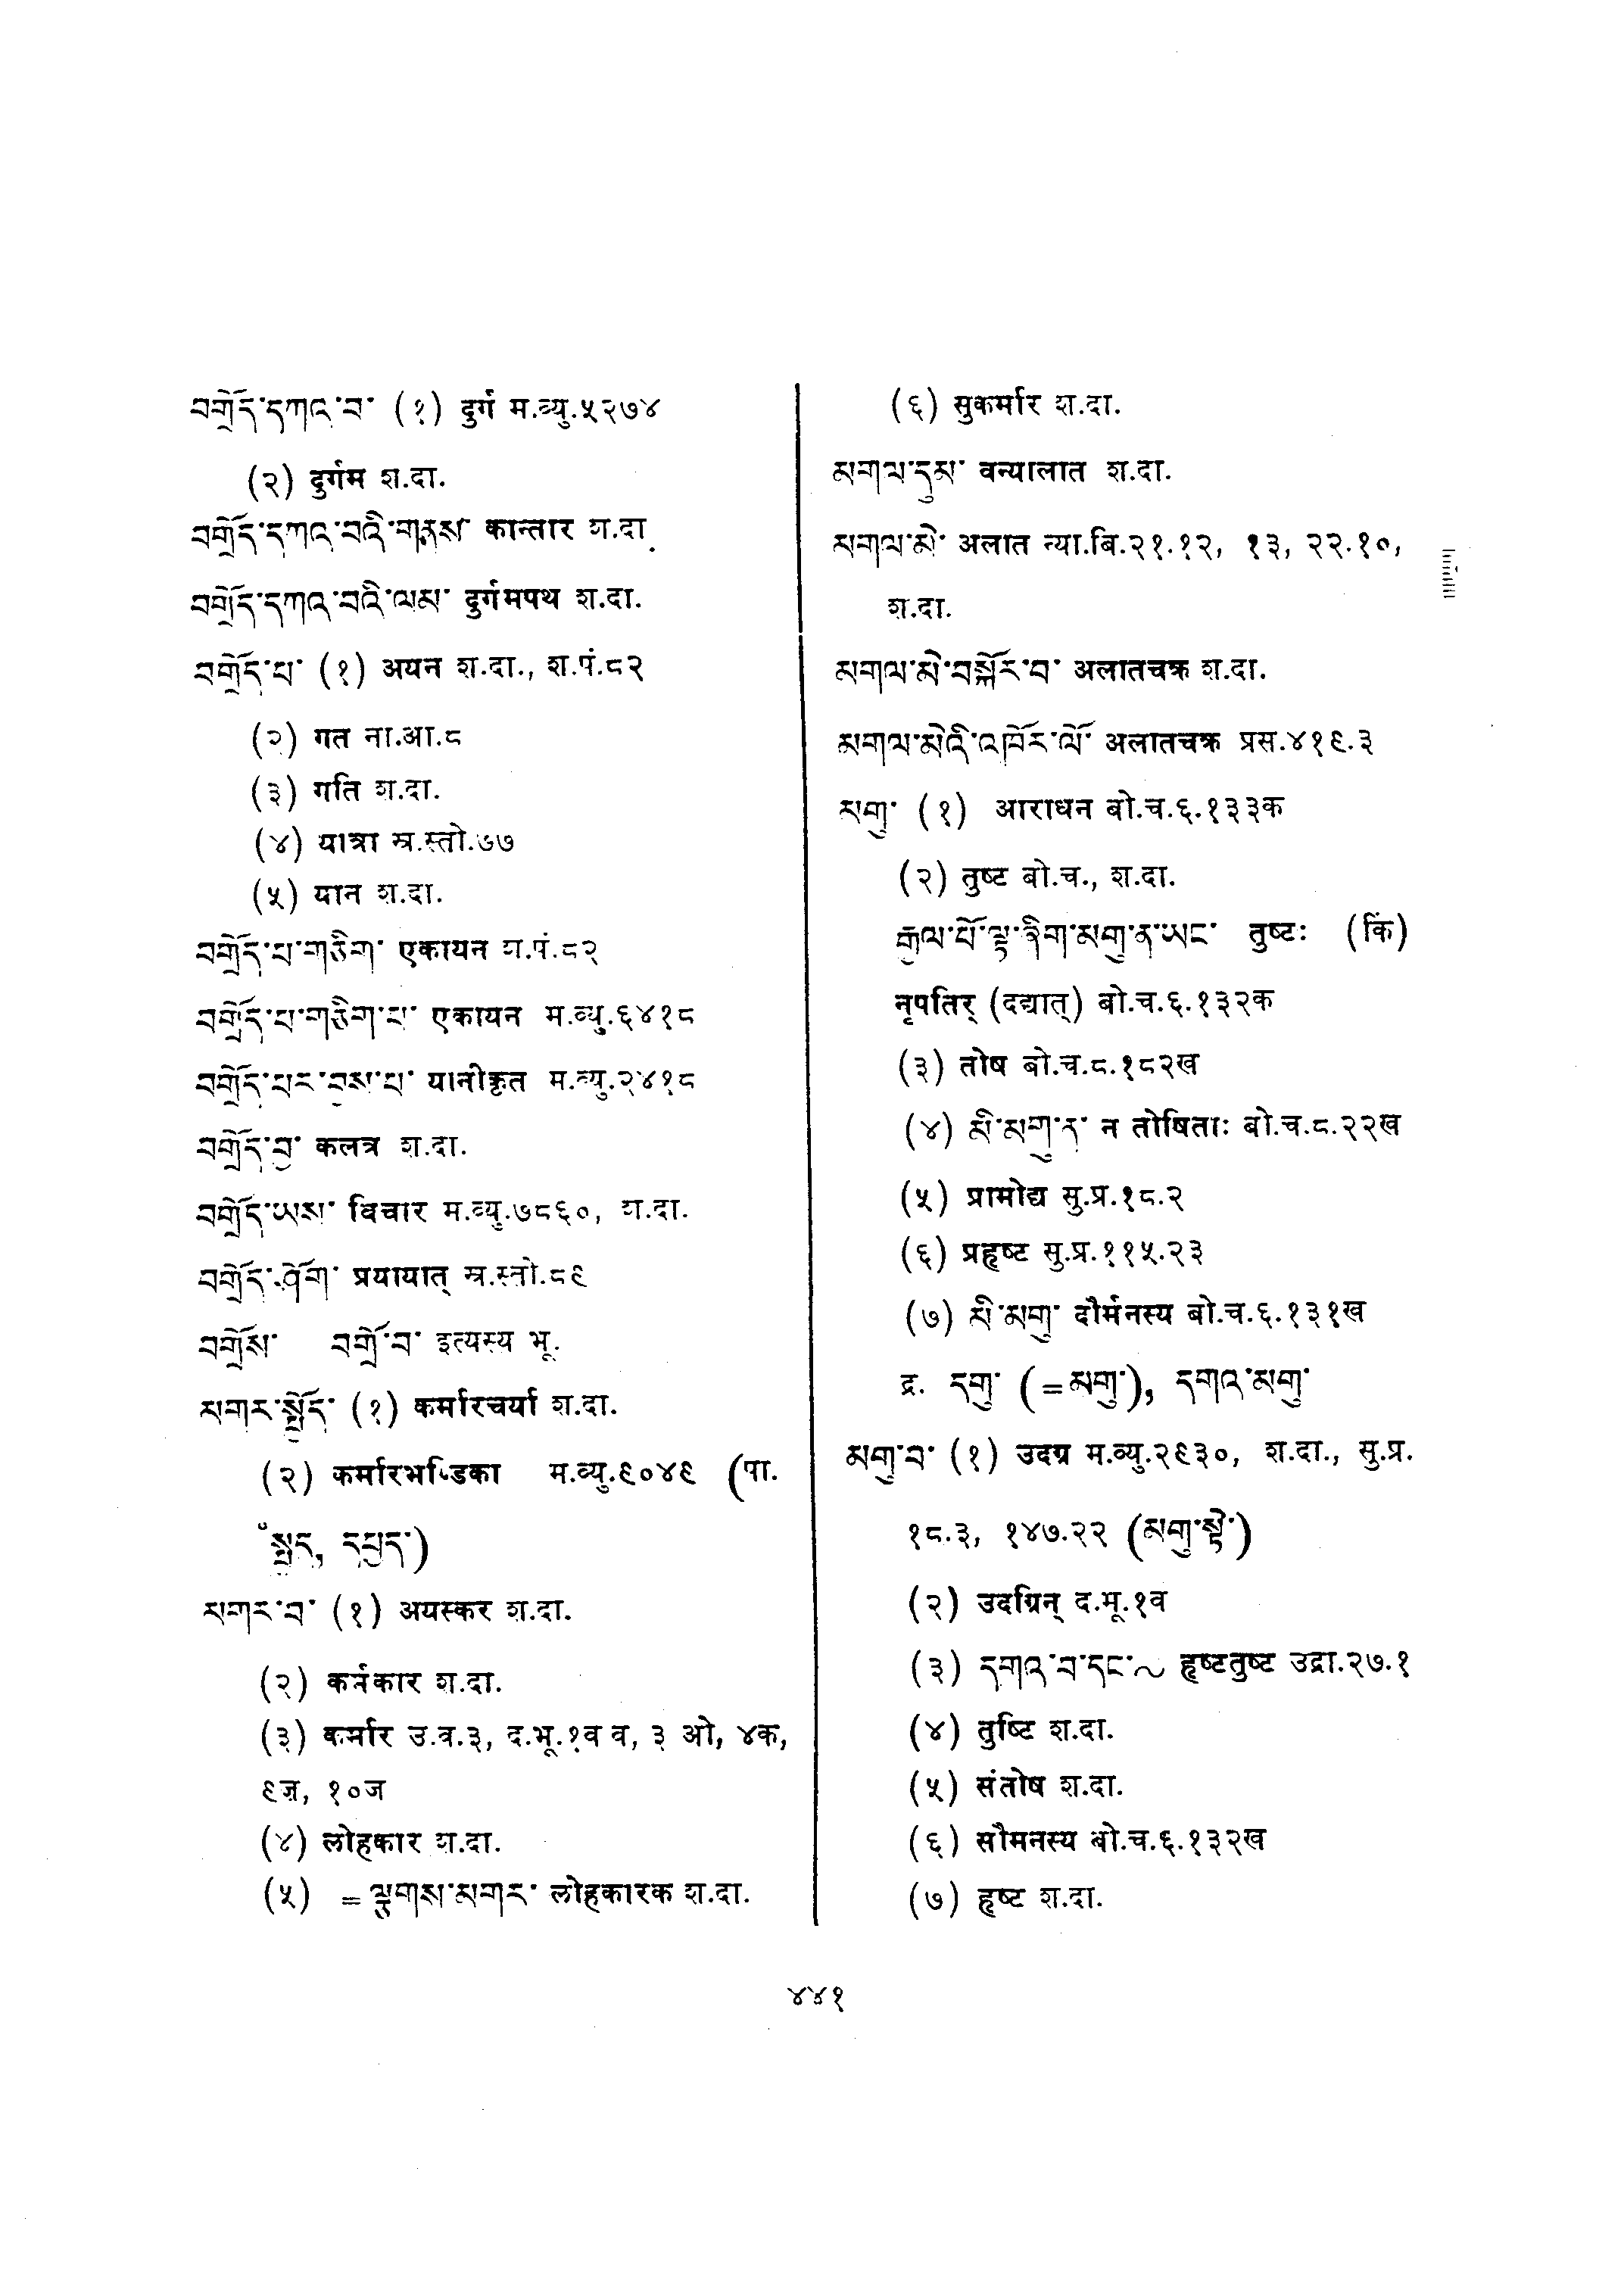 བགྲོད་དཀའ་བ་ (१) दुर्ग म.व्यु.५२७४
(२) दुर्गम श.दा.
བགྲོད་དཀའ་བའི་གནས་ कान्तार श.दा.
བགྲོད་དཀའ་བའི་ལམ་ दुर्गमपथ श.दा.
བགྲོད་པ་ (१) अयन श.दा., श.पं.८२
(२) गत ना.आ.८
(३) गति श.दा.
(४) यात्रा स्र.स्तो.७७
(५) यान श.दा.
བགྲོད་པ་གཅིག་ एकायन श.पं.८२
བགྲོད་པ་གཅིག་པ་ एकायन म.व्यु.६४१८
བགྲོད་པར་བྱས་པ་ यानीकृत म.व्यु.२४१८
བགྲོད་བྱ་ कलत्र श.दा.
བགྲོད་ཡས་ विचार म.व्यु.७८६०, श.दा.
བགྲོད་ཤོག་ प्रयायात् स्र.स्तो.८९
བགྲོས་ བགྲོ་བ་ इत्यस्य भू.
མགར་སྤྱོད་ (१) कर्मारचर्या श.दा.
(२) कर्मारभण्डिका म.व्यु.९०४९ (पा.
སྤྱད, དཔྱད་)
མགར་བ་ (१) अयस्कर श.दा.
(२) कर्नकार श.दा.
(३) कर्मार उ.व.३, द.भू.१व व, ३ ओ, ४क,
९ज, १०ज
(४) लोहकार श.दा.
(५) = ལྕགས་མགར་ लोहकारक श.दा.
(६) सुकर्मार श.दा.
མགལ་དུམ་ वन्यालात श.दा.
མགལ་མེ་ अलात न्या.बि.२१.१२, १३, २२.१०,
श.दा.
མགལ་མེ་བསྐོར་བ་ अलातचक्र श.दा.
མགལ་མེའི་འཁོར་ལོ་ अलातचक्र प्रस.४१९.३
མགུ་ (१) आराधन बो.च.६.१३३क
(२) तुष्ट बो.च., श.दा.
རྒྱལ་པོ་ལྟ་ཞིག་མགུ་ན་ཡང་ तुष्टः (किं)
नृपतिर् (दद्यात्) बो.च.६.१३२क
(३) तोष बो.च.८.१८२ख
(४) མི་མགུ་ན་ न तोषिताः बो.च.८.२२ख
(५) प्रामोद्य सु.प्र.१८.२
(६) प्रहृष्ट सु.प्र.११५.२३
(७) མི་མགུ་ दौर्मनस्य बो.च.६.१३१ख
द्र. དགུ་ (=མགུ་), དགའ་མགུ་
མགུ་བ་ (१) उदग्र म.व्यु.२९३०, श.दा., सु.प्र.
१८.३, १४७.२२ (མགུ་སྟེ་)
(२) उदग्रिन् द.भू.१व
(३) དགའ་བ་དང་~ हृष्टतुष्ट उद्रा.२७.१
(४) तुष्टि श.दा.
(५) संतोष श.दा.
(६) सौमनस्य बो.च.६.१३२ख
(७) हृष्ट श.दा.
४४१